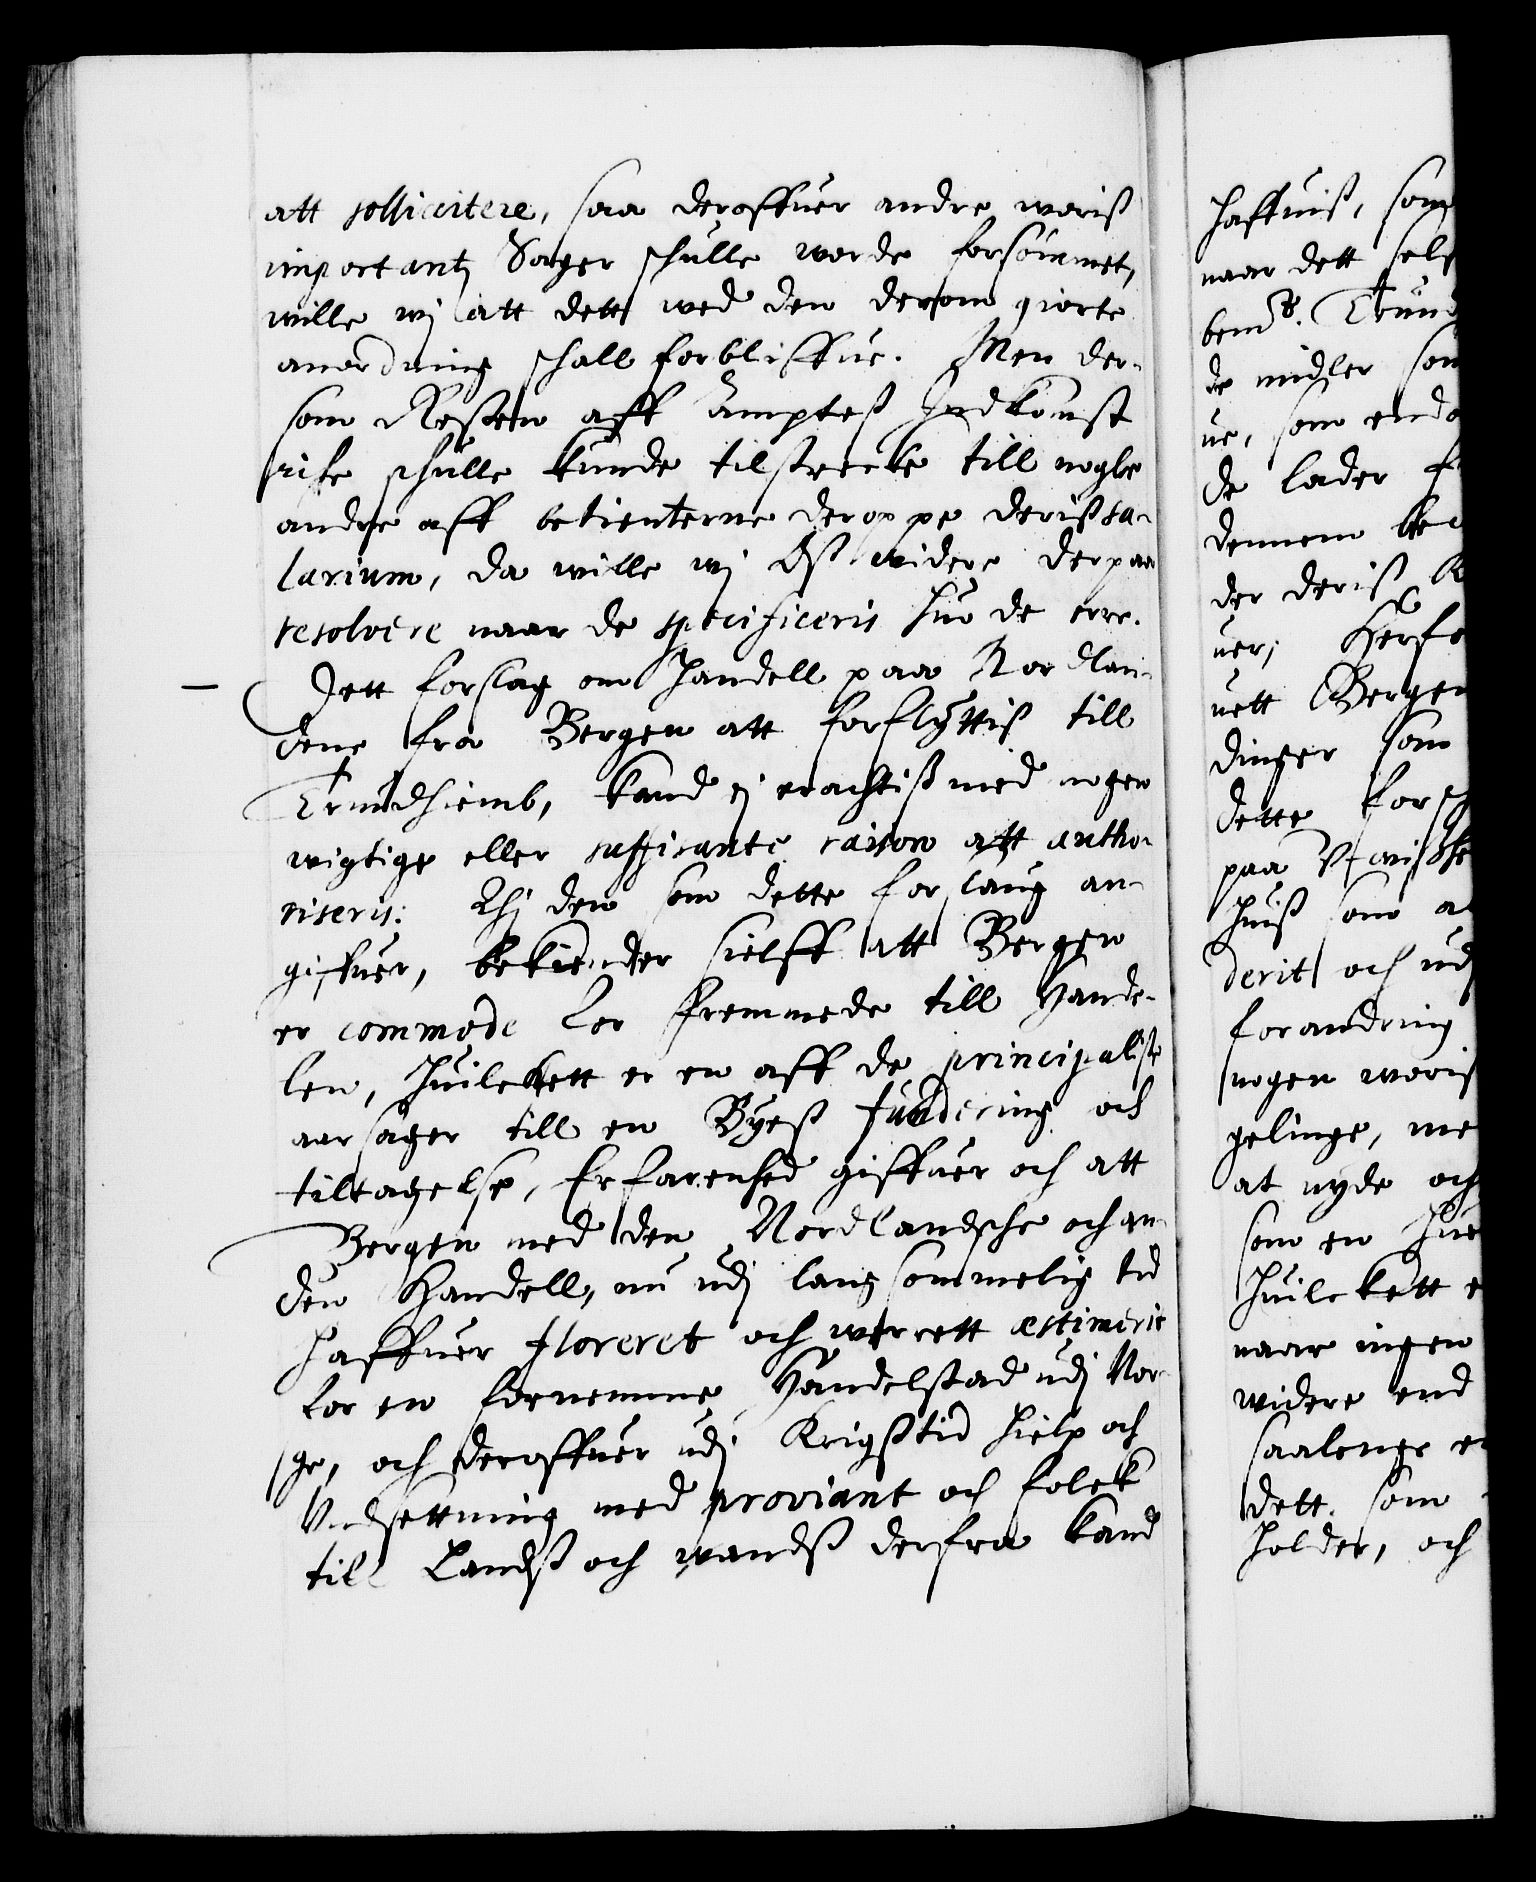 att sollicitere, saa deroffuer andre woriß
important, Sager schulle worde forsømmet,
wille wj att dett wed den derom giorte
anordning schall forbliffue. Men der-
som Resten aff Ampteß Indkomst
icke schulle kunde tilstrecke till nogle
andre aff betienterne deroppe deriß sa-
larium, da wille wj Oß widere derpaa
resolvere naar de specificeris huo de erre.
Dett forslag om handell paa Nordlan-
dene fra Bergen att forflyttiß till
Trundhiemb, kand ej eractiß med nogen
wigtige eller suffisante raison att autho-
riseris: Thj den som dette forslaug an-
giffuer, bekiender sielff att Bergen
er commode for fremmede till Hande-
len, huilckett er en aff de principaliste
aarsager till en Byeß fundering och
tiltagelse, Erfarenhed giffuer och att
Bergen med den Nordlandsche och an-
den Handell, nu udj langsommelig tid
haffuer floreret och werrett æstimerit
for en fornemme Handelstad udj Nor-
ge, och deroffuer udj Krigßtid hielp och
Undsettning med proviant och folck
till Landß och wandß derfra kand
haffuiß, som
naar dett sel
bemte. Trund
de midler som
ue, som end
de lader
dennem be
der deriß
uer; Herfo
uett Bergen
dinger som
dette forsch
paa Uwisse
huiß som
derit och udj
forandring
nogen woriß
gelinge, me
at nyde och
som en hue
huilckett e
naar ingen
widere end
saalenge e
dett som
holder, och